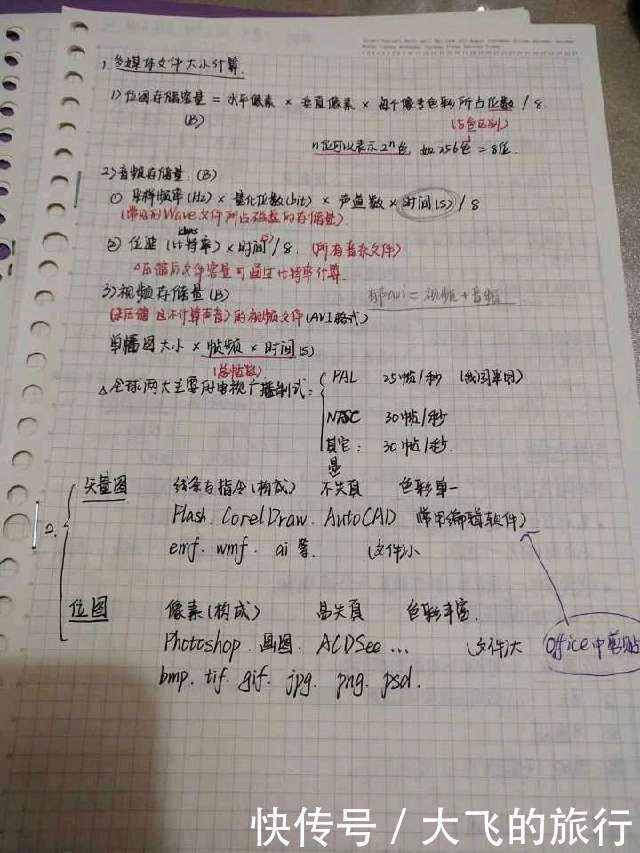 1. 多媒体文件大小计算.
1) 位图存储容量 = 水平像素 × 垂直像素 × 每个像素色彩所占位数 / 8
(B)
n位可以表示2ⁿ色 如256色 = 8位.
2) 音频存储量. (B)
① 采样频率(Hz) × 量化位数(bit) × 声道数 × 时间(S) / 8
(常见于Wave文件所占磁盘的存储量).
② 位速 (比特率) × 时间(S) / 8. (所有音乐文件)
压缩后文件容量可通过比特率计算.
3) 视频存储量 (B)
= 视频 + 音频
(未压缩 且不计算声音) 的视频文件 (AVI格式)
单幅图大小 × 帧频 × 时间(S)
(总帧数)
△全球两大主要的电视广播制式:
PAL 25帧/秒 (我国单用)
NTSC 30帧/秒
其它: 30帧/秒.
2.
矢量图 线条与指令(构成) 不失真 色彩单一
Flash. CorelDraw. AutoCAD (常用编辑软件)
emf. wmf. ai 等. (文件小
位图 像素(构成) 易失真 色彩丰富.
Photoshop. 画图. ACDSee ... (文件大 Office中剪贴
bmp. tif. gif. jpg. png. psd.
快传号 / 大飞的旅行